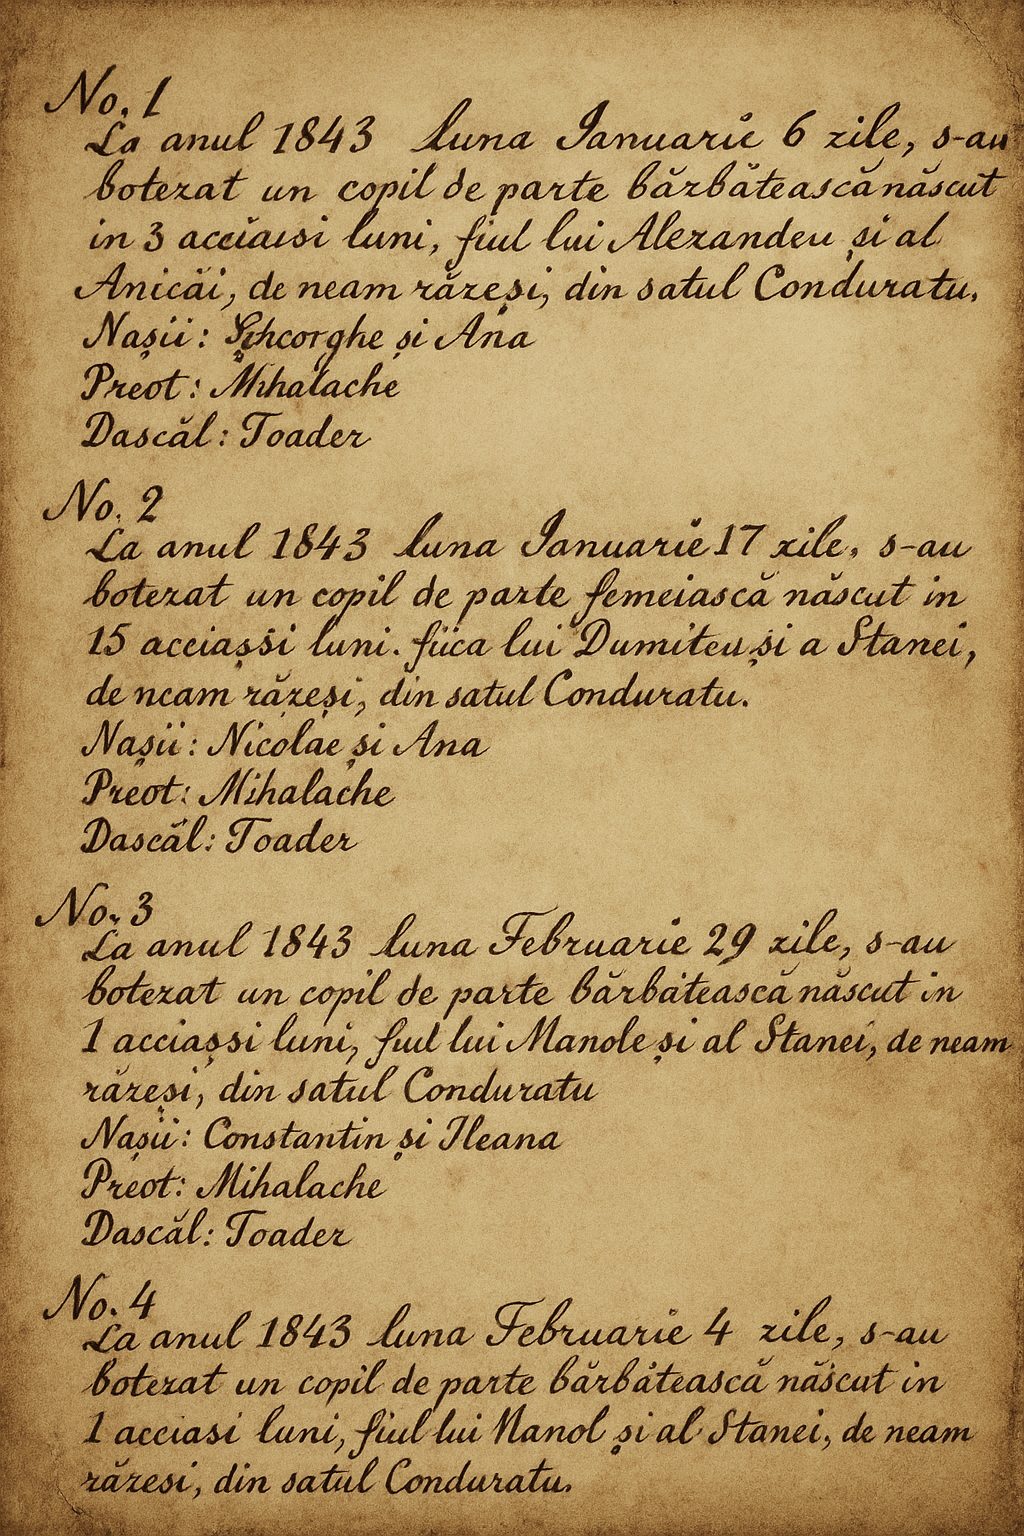 No. 1
La anul 1843 luna Ianuarie 6 zile, s-au
botezat un copil de parte bărbătească născut
in 3 acciaısi luni, fiul lui Alexandeu și al
Anicăi, de neam răzeși, din satul Conduratu.
Nașii: Ghcorghe și Ana
Preot: Mihalache
Dascăl: Toader
No. 2
La anul 1843 luna Ianuarie 17 zile, s-au
botezat un copil de parte femeiască născut in
15 acciașsi luni. fiica lui Dumiteu și a Stanei,
de neam răzeși, din satul Conduratu.
Nașii: Nicolae și Ana
Preot: Mihalache
Dascăl: Toader
No. 3
La anul 1843 luna Februarie 29 zile, s-au
botezat un copil de parte bărbătească născut in
1 acciașsi luni, fiul lui Manole și al Stanei, de neam
răzeși, din satul Conduratu
Nașii: Constantin și Ileana
Preot: Mihalache
Dascăl: Toader
No. 4
La anul 1843 luna Februarie 4 zile, s-au
botezat un copil de parte bărbătească născut in
1 acciasi luni, fiul lui Manol și al Stanei, de neam
răzesi, din satul Conduratu.